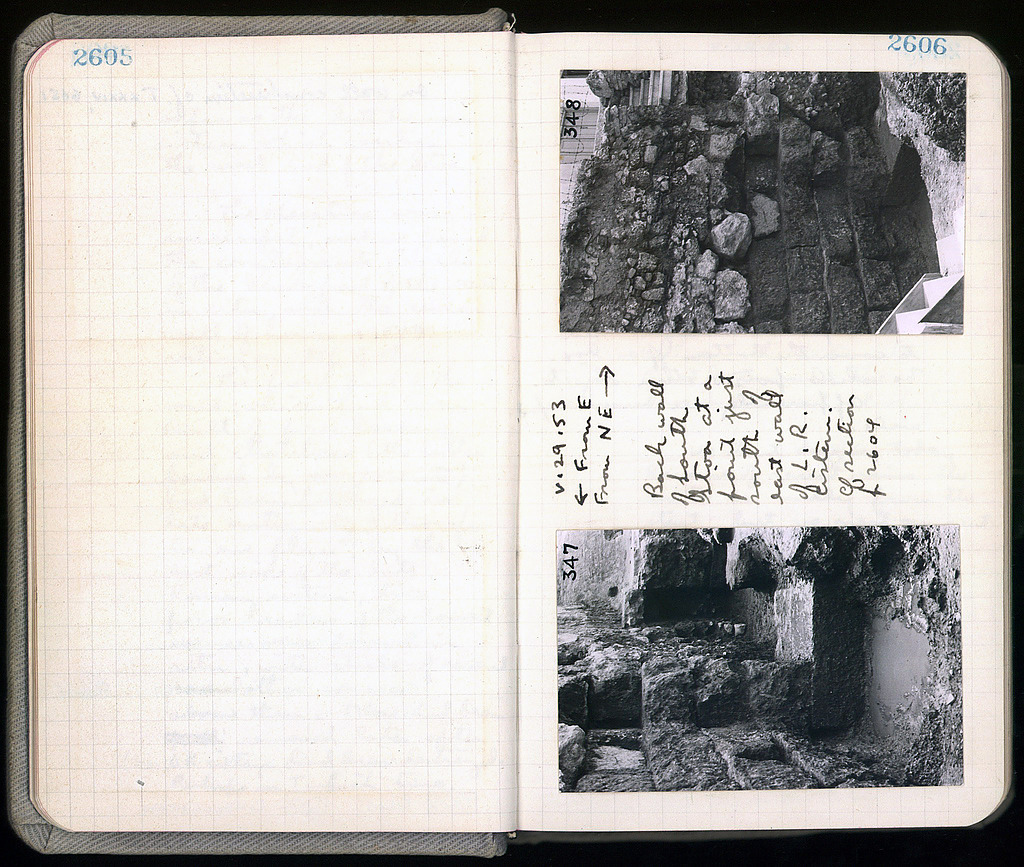 2605
2606
348
V.29.53
← From E
From NE →
Back wall
of South
Stoa at a
point just
south of
east wall
of L.R.
cistern.
cf section
p 2604
347